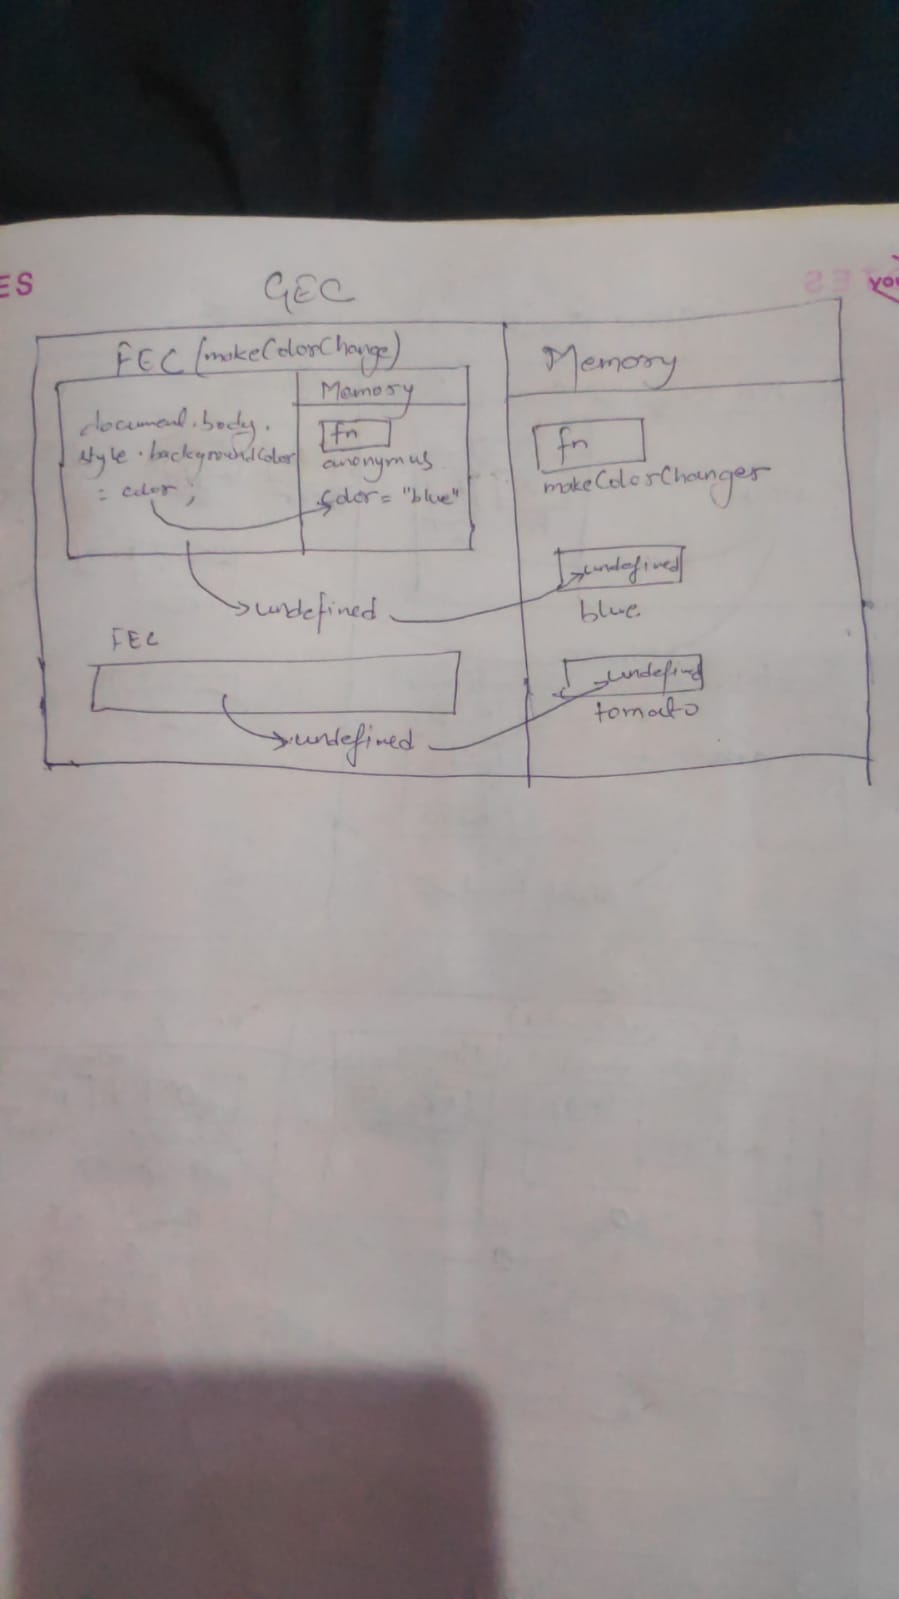 ES
GEC
FEC (makeColorChange)
Memory
document.body.
style.backgroundColor
= color;
Memory
fn
anonymus
color = "blue"
undefined
FEC
undefined
fn
makeColorChanger
undefined
blue
undefined
tomato